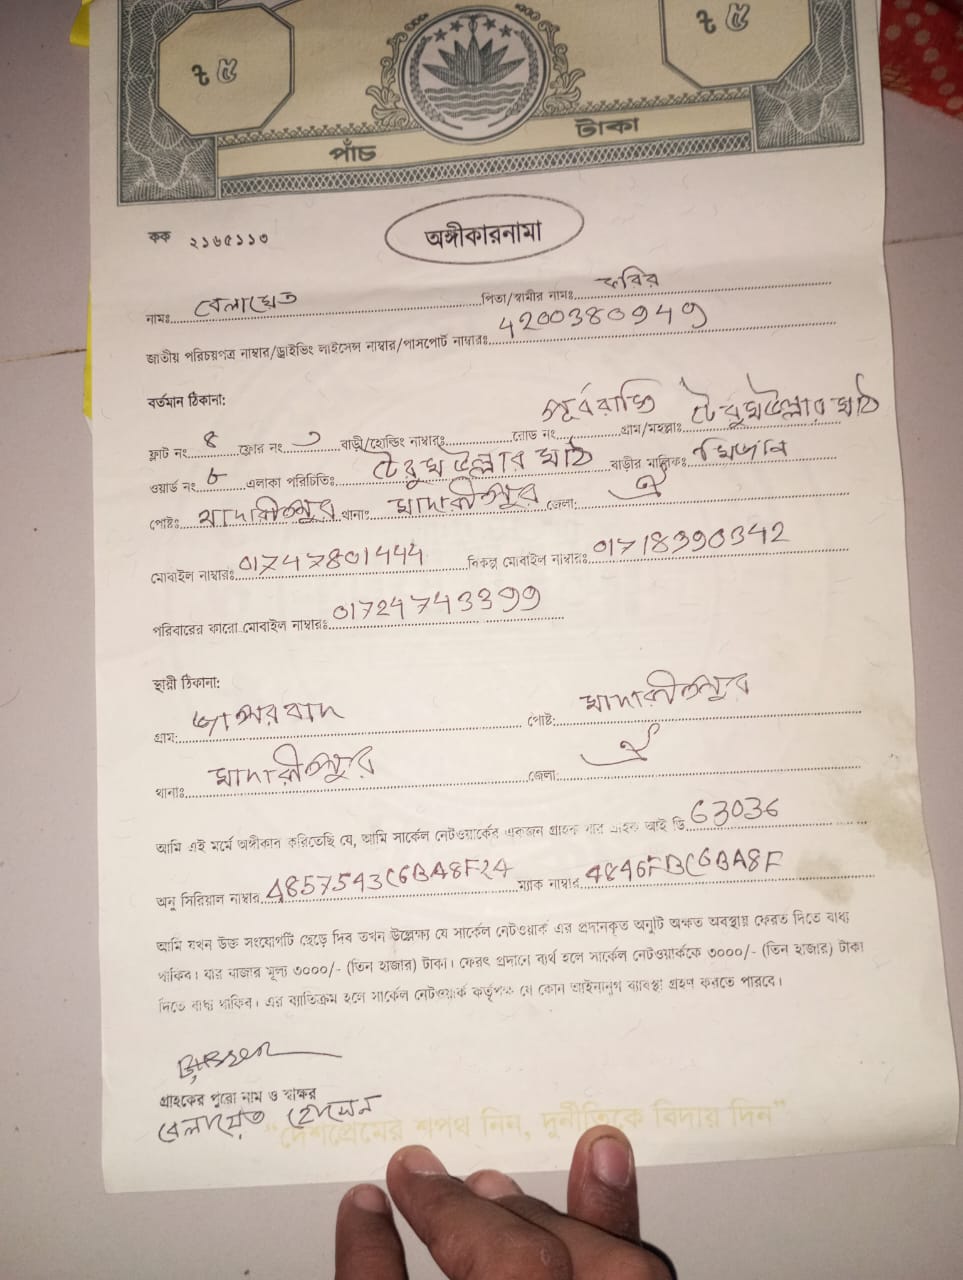 ৳ ৫
৳ ৫
পাঁচ টাকা
কক ২১৬৫১১৩
অঙ্গীকারনামা
নামঃ বেলায়েত পিতা/স্বামীর নামঃ কবির
জাতীয় পরিচয়পত্র নাম্বার/ড্রাইভিং লাইসেন্স নাম্বার/পাসপোর্ট নাম্বারঃ 4200380949
বর্তমান ঠিকানা:
ফ্লাট নং ৪ ফ্লোর নং ৩ বাড়ী/হোল্ডিং নাম্বারঃ রোড নং গ্রাম/মহল্লাঃ
ওয়ার্ড নং ৮ এলাকা পরিচিতিঃ বাড়ীর মালিকঃ
পোষ্টঃ মাদারীপুর থানাঃ মাদারীপুর জেলা: ঐ
মোবাইল নাম্বারঃ 01747801444 বিকল্প মোবাইল নাম্বারঃ 01718390342
পরিবারের কারো মোবাইল নাম্বারঃ 01724743399
স্থায়ী ঠিকানা:
গ্রাম: পোষ্ট: মাদারীপুর
থানাঃ মাদারীপুর জেলা: ঐ
আমি এই মর্মে অঙ্গীকার করিতেছি যে, আমি সার্কেল নেটওয়ার্কের একজন গ্রাহক যার গ্রাহক আই ডি 63036
অনু সিরিয়াল নাম্বার 4857543C6BA8F24 ম্যাক নাম্বার 4846FBC6BA8F
আমি যখন উক্ত সংযোগটি ছেড়ে দিব তখন উল্লেক্ষ্য যে সার্কেল নেটওয়ার্ক এর প্রদানকৃত অনুটি অক্ষত অবস্থায় ফেরত দিতে বাধ্য
থাকিব। যার বাজার মূল্য ৩০০০/- (তিন হাজার) টাকা। ফেরৎ প্রদানে ব্যর্থ হলে সার্কেল নেটওয়ার্ককে ৩০০০/- (তিন হাজার) টাকা
দিতে বাধ্য থাকিব। এর ব্যতিক্রম হলে সার্কেল নেটওয়ার্ক কর্তৃপক্ষ যে কোন আইনানুগ ব্যবস্থা গ্রহণ করতে পারবে।
গ্রাহকের পুরো নাম ও স্বাক্ষর
বেলায়েত হোসেন
"দেশপ্রেমের শপথ নিন, দুর্নীতিকে বিদায় দিন"